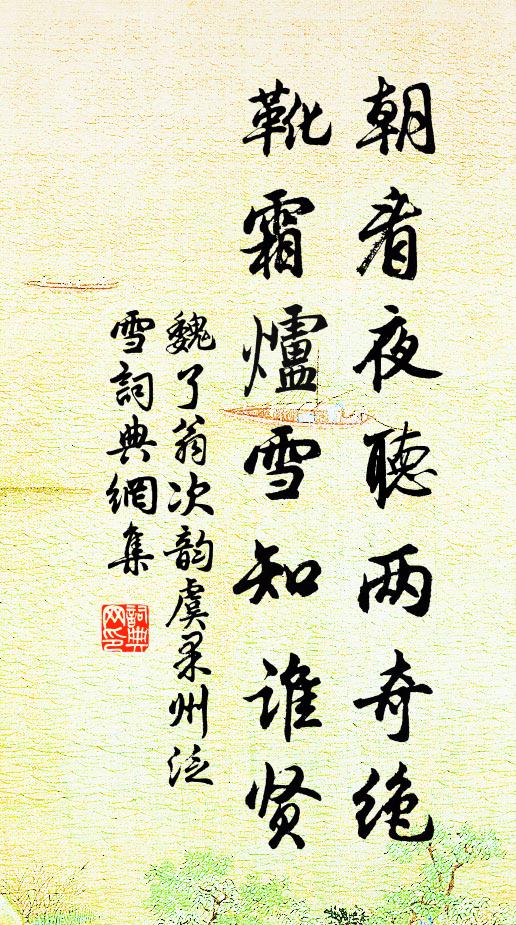 朝看夜聽两奇绝
靴霜爐雪知谁贤
魏了翁次韵虞果州泛
雪詞典網集
詞典
网印